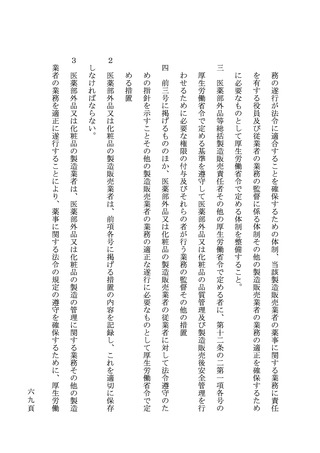 務の遂行が法令に適合することを確保するための体制、当該製造販売業者の薬事に関する業務に責任
を有する役員及び従業者の業務の監督に係る体制その他の製造販売業者の業務の適正を確保するため
に必要なものとして厚生労働省令で定める体制を整備すること。
三　医薬部外品等総括製造販売責任者その他の厚生労働省令で定める者に、第十二条の二第一項各号の
厚生労働省令で定める基準を遵守して医薬部外品又は化粧品の品質管理及び製造販売後安全管理を行
わせるために必要な権限の付与及びそれらの者が行う業務の監督その他の措置
四　前三号に掲げるもののほか、医薬部外品又は化粧品の製造販売業者の従業者に対して法令遵守のた
めの指針を示すことその他の製造販売業者の業務の適正な遂行に必要なものとして厚生労働省令で定
める措置
２　医薬部外品又は化粧品の製造販売業者は、前項各号に掲げる措置の内容を記録し、これを適切に保存
しなければならない。
３　医薬部外品又は化粧品の製造業者は、医薬部外品又は化粧品の製造の管理に関する業務その他の製造
業者の業務を適正に遂行することにより、薬事に関する法令の規定の遵守を確保するために、厚生労働
六九頁